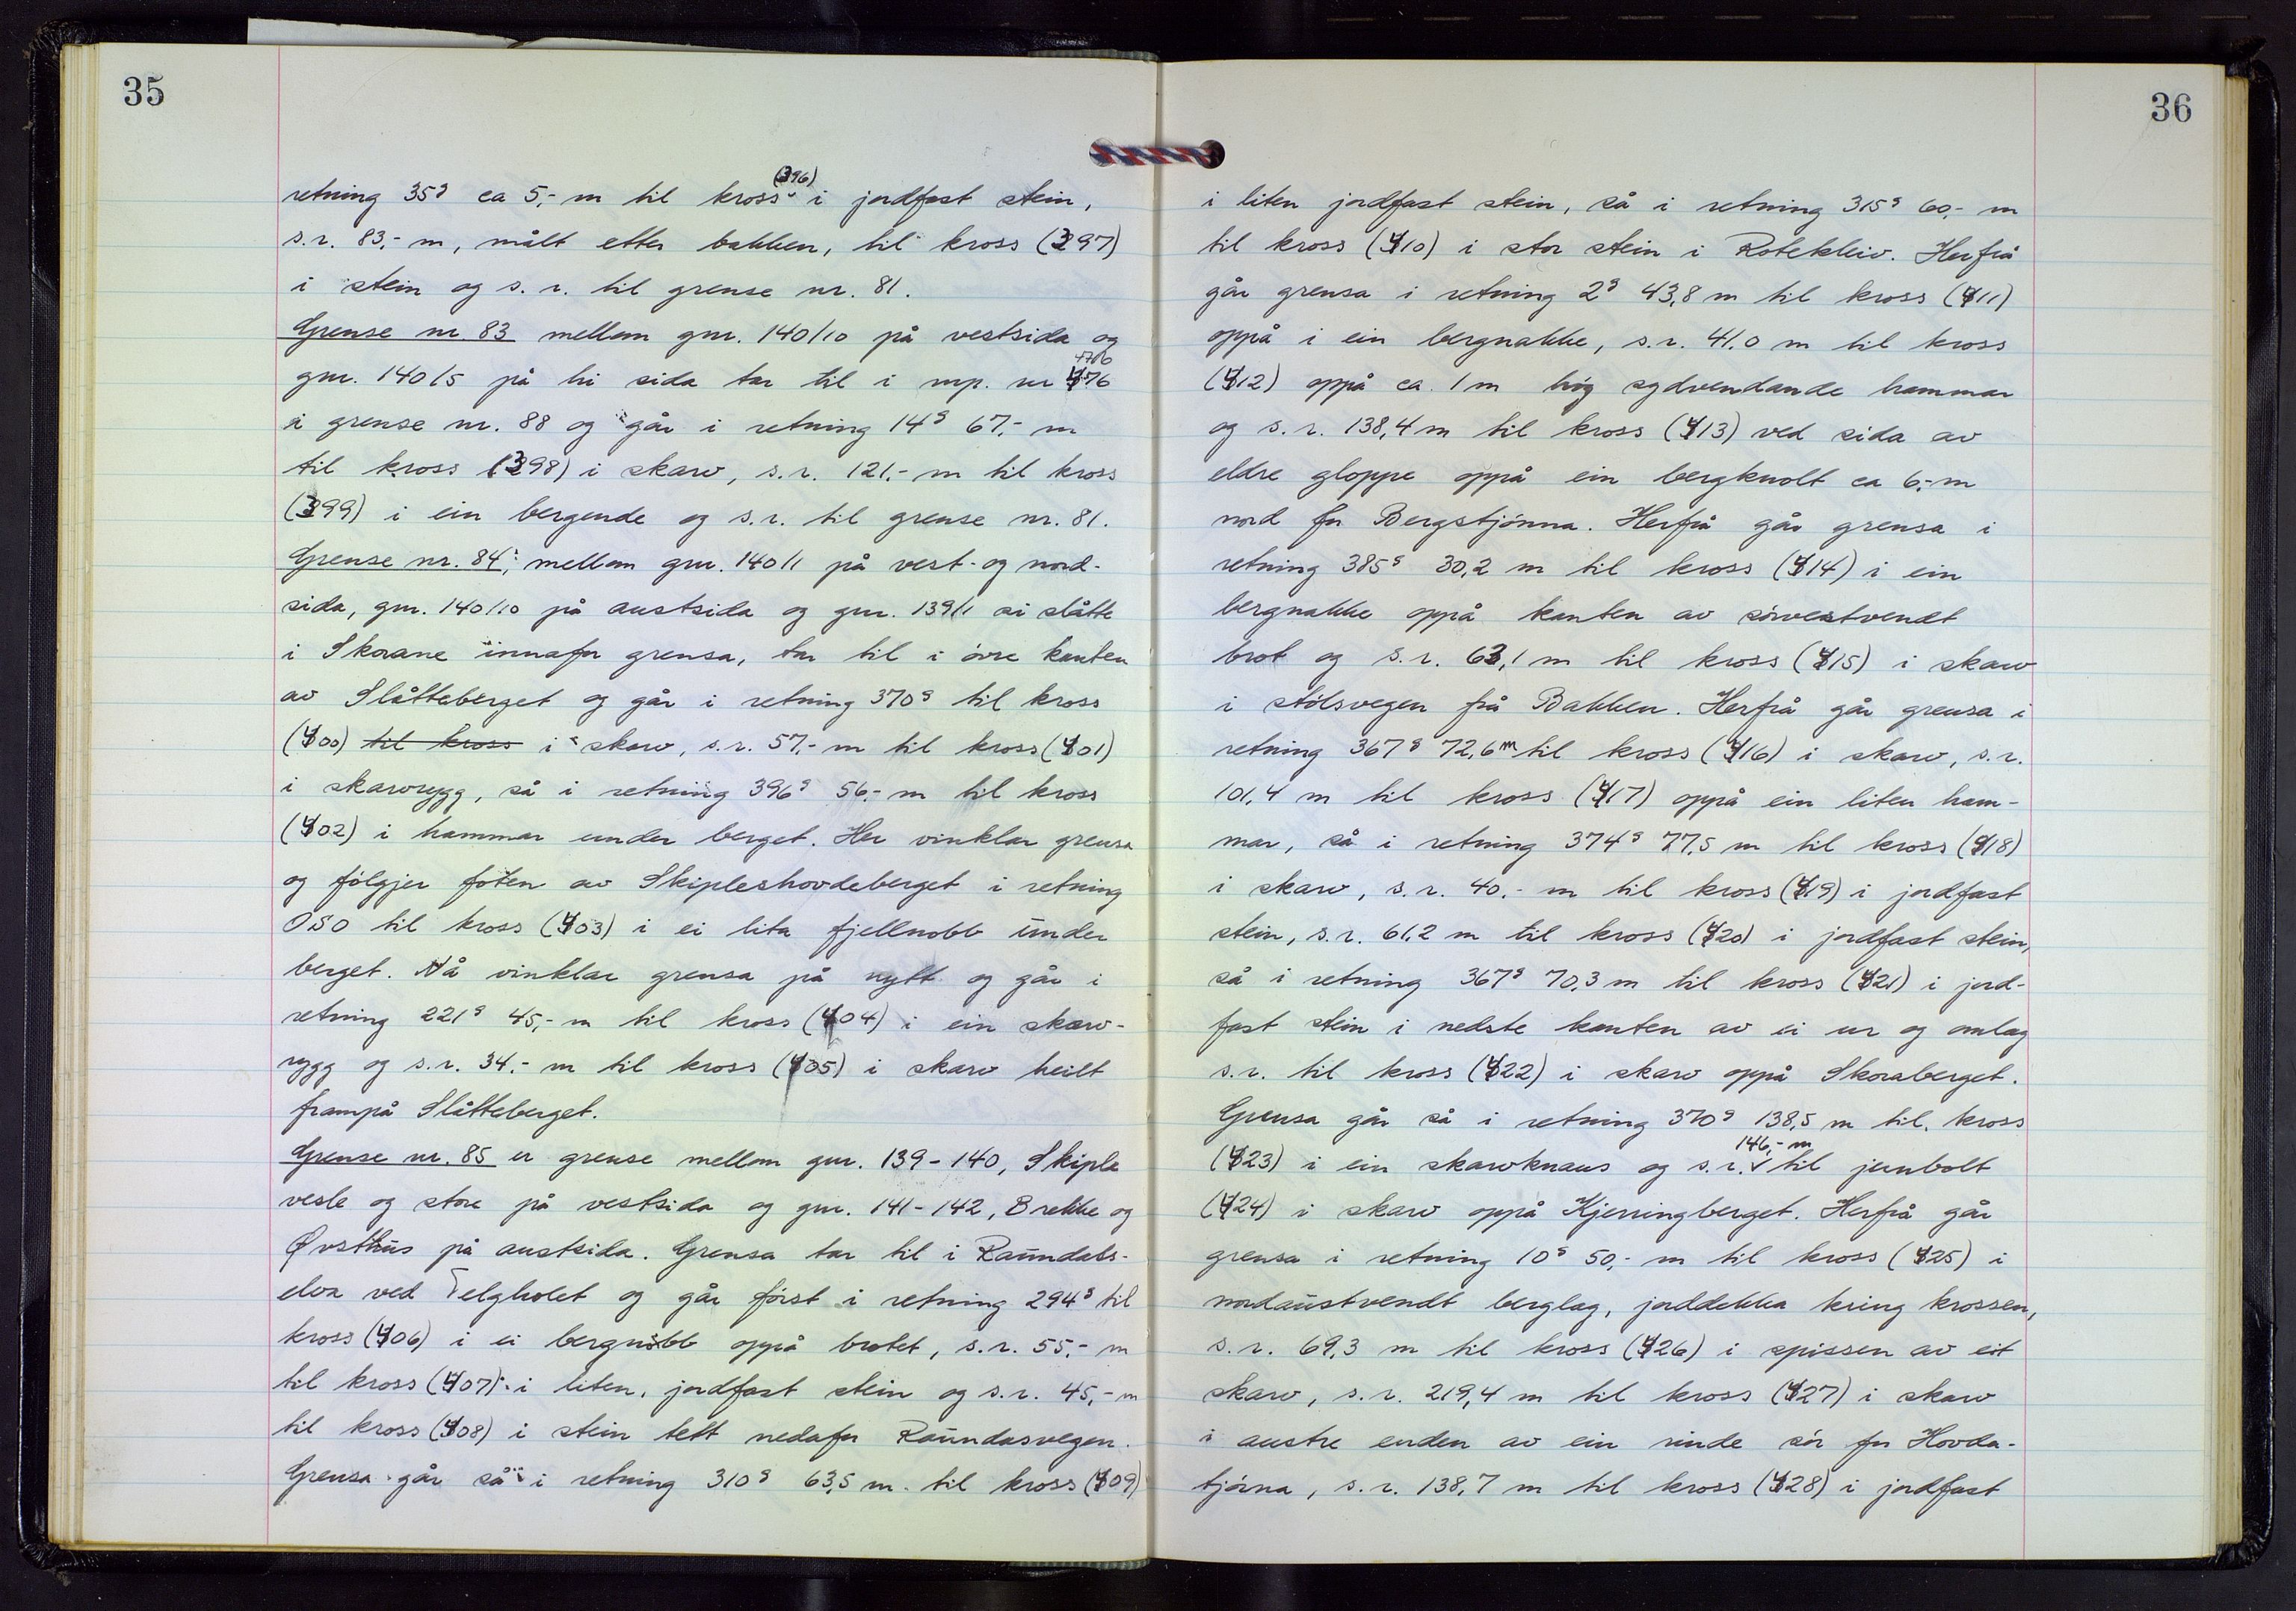 35
retning 35g ca 5,- m til kross (396) i jordfast stein,
s.r. 83,- m, målt etter bakken, til kross (397)
i stein og s.r. til grense nr. 81.
Grense nr. 83 mellom gnr. 140/10 på vestsida og
gnr. 140/5 på hi sida tar til i mp. nr 476
i grense nr. 88 og går i retning 14g 67,- m
til kross (398) i skarv, s.r. 121,- m til kross
(399) i ein bergende og s.r. til grense nr. 81.
Grense nr. 84, mellom gnr. 140/1 på vest- og nord-
sida, gnr. 140/10 på austsida og gnr. 139/1 si slåtte
i Skorane innafor grensa, tar til i øvre kanten
av Slåtteberget og går i retning 370g til kross
(400) til kross i skarv, s.r. 57,- m til kross (401)
i skarvrygg, så i retning 396g 56,- m til kross
(402) i hammar under berget. Her vinklar grensa
og følgjer foten av Skipleshovdeberget i retning
OSO til kross (403) i ei lita fjellnobb under
berget. Nå vinklar grensa på nytt og går i
retning 221g 45,- m til kross (404) i ein skarv-
rygg og s.r. 34,- m til kross (405) i skarv heilt
frampå Slåtteberget.
Grense nr. 85 er grense mellom gnr. 139-140, Skiple
vesle og store på vestsida og gnr. 141-142, Brekke og
Øvsthus på austsida. Grensa tar til i Raundals-
elva ved Telgholet og går først i retning 294g til
kross (406) i ei bergnobb oppå brotet, s.r. 55,- m
til kross (407) i liten, jordfast stein og s.r. 45,- m
til kross (408) i stein tett nedafor Raundasvegen.
Grensa går så i retning 310g 63,5 m til kross (409)
36
i liten jordfast stein, så i retning 315g 60,- m
til kross (410) i stor stein i Rotekleiv. Herfrå
går grensa i retning 2g 43,8 m til kross (411)
oppå i ein bergnakke, s.r. 41,0 m til kross
(412) oppå ca. 1 m høg sydvendande hammar
og s.r. 138,4 m til kross (413) ved sida av
eldre gloppe oppå ein bergknolt ca 6,- m
nord for Bergstjønna. Herfrå går grensa i
retning 385g 30,2 m til kross (414) i ein
bergnakke oppå kanten av sørvestvendt
brot og s.r. 63,1 m til kross (415) i skarv
i stølsvegen frå Bakken. Herfrå går grensa i
retning 367g 72,6 m til kross (416) i skarv, s.r.
101,4 m til kross (417) oppå ein liten ham-
mar, så i retning 374g 77,5 m til kross (418)
i skarv, s.r. 40,- m til kross (419) i jordfast
stein, s.r. 61,2 m til kross (420) i jordfast stein,
så i retning 367g 70,3 m til kross (421) i jord-
fast stein i nedste kanten av ei ur og omlag
s.r. til kross (422) i skarv oppå Skoraberget.
Grensa går så i retning 370g 138,5 m til kross
(423) i ein skarvknaus og s.r. 146,- m til jernbolt
(424) i skarv oppå Kjerringberget. Herfrå går
grensa i retning 10g 50,- m til kross (425) i
nordaustvendt berglag, jorddekka kring krossen,
s.r. 69,3 m til kross (426) i spissen av eit
skarv, s.r. 219,4 m til kross (427) i skarv
i austre enden av ein rinde sør for Hovda-
tjørna, s.r. 138,7 m til kross (428) i jordfast